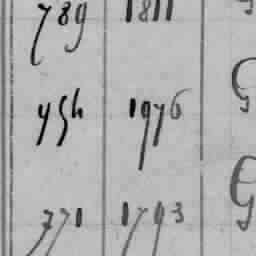 789 1811
754 1976
771 1793